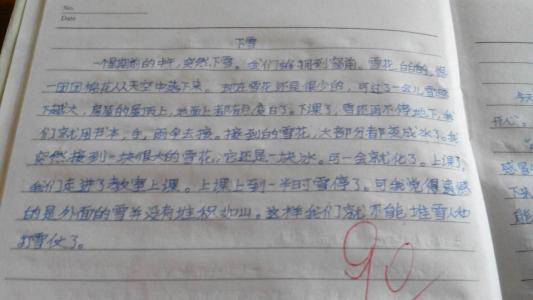 No.
Date
下雪
一个星期的中午,突然下雪。我们都拥到窗前。雪花白白的,像
一团团棉花从天空中落下来。现在雪花还是很少的,可过了一会儿雪越
下越大,屋顶的屋顶上,地面上都有点变白了。下课了,雪还在不停地下,我
们就用书本,手,雨伞去接。接到的雪花,大部分都变成冰了。我
突然接到一块很大的雪花,它还是一块冰。可一会就化了。上课了,
我们走进了教室上课。上课上到一半时雪停了。可我觉得遗憾
的是外面的雪并没有堆积如山。这样我们就不能堆雪人和
打雪仗了。
90
今天
开心
感冒
下来